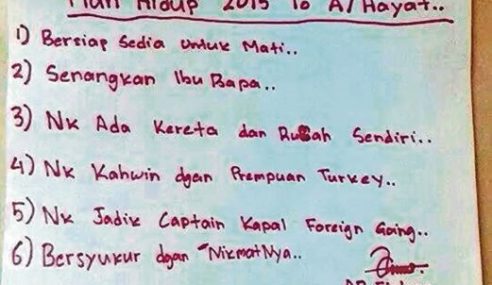 Hidup 2015 To A/Hayat..
1) Bersiap Sedia Untuk Mati..
2) Senangkan Ibu Bapa..
3) Nk Ada Kereta dan Rumah Sendiri..
4) Nk Kahwin dgan Prempuan Turkey..
5) Nk Jadik Captain Kapal Foreign Going..
6) Bersyukur dgan "NikmatNya..